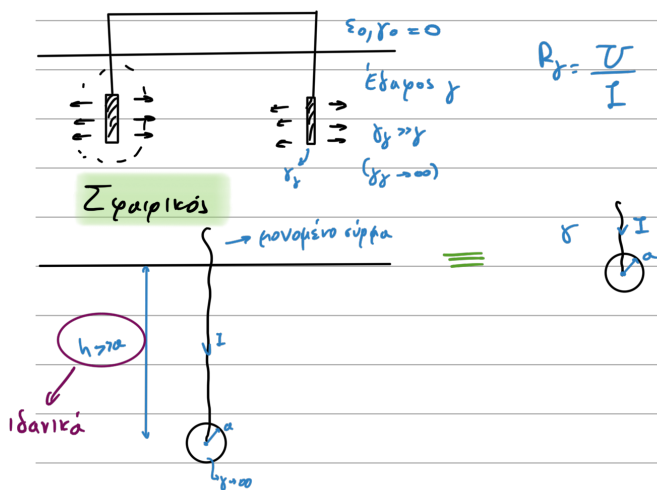 ε₀, γ₀ = 0
R_γ = U / I
Έδαφος γ
γ_γ >> γ
(γ_γ → ∞)
γ_γ
Σφαιρικός
μονωμένο σύρμα
γ
I
a
h >> a
I
ιδανικά
a
γ → ∞